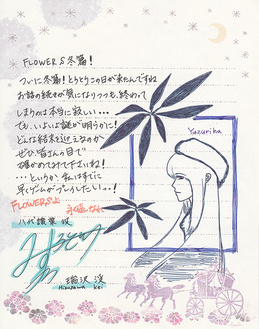 FLOWERS冬篇！
ついに冬篇！とうとうこの日が来たんですね
お話の続きが気になりつつも、終わって
しまうのは本当に寂しい…
でも、いよいよ謎が明らかに！
どんな結末を迎えるのか
ぜひ、皆さんの目で
確かめてみて下さいね！
…というか、私はすでに
早くゲームがプレイしたいっ…！
FLOWERSよ
永遠なれ
八代譲葉 役
Yuzuriha
瑠沢 渓
Himezawa Kei